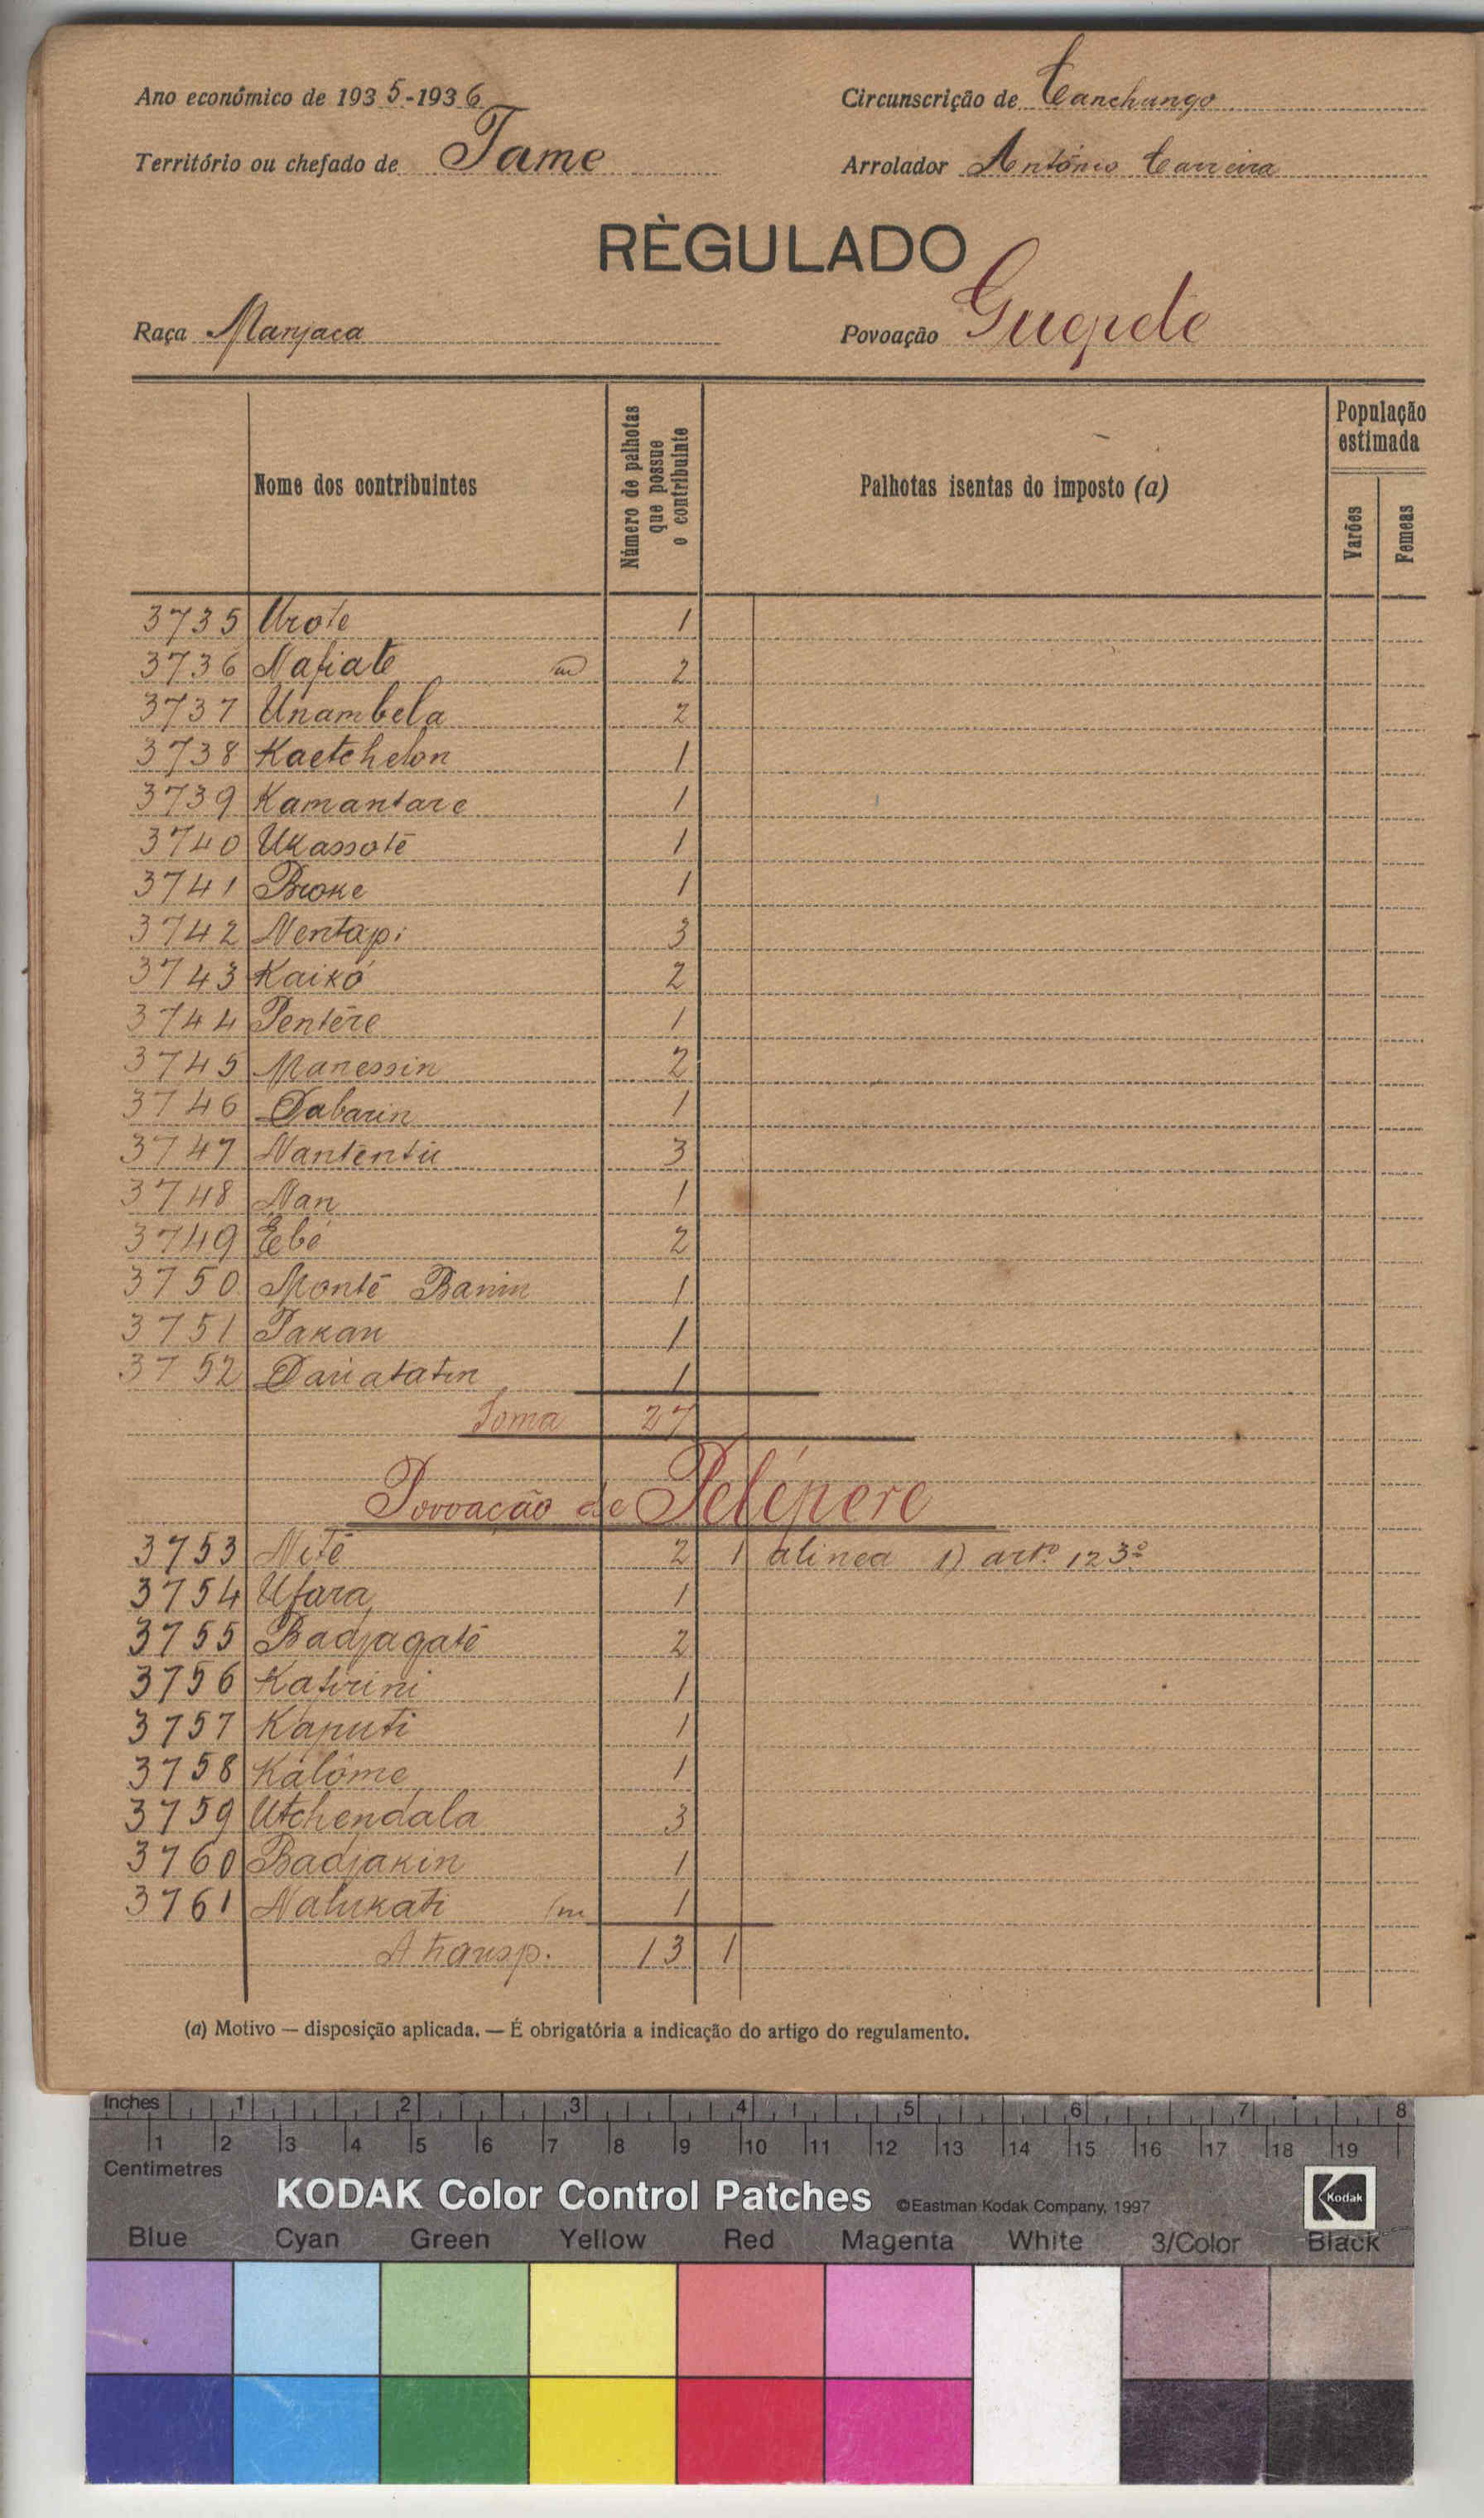 Ano económico de 1935-1936
Circunscrição de Canchungo
Território ou chefado de Tame
Arrolador António Carreira
RÈGULADO
Raça Manjaca
Povoação Guepde
Nome dos contribuintes
Número de palhotas que possue o contribuinte
Palhotas isentas do imposto (a)
População estimada
Varões
Femeas
3735 Urote 1
3736 Nafiate m 2
3737 Unambela 2
3738 Kaetchelon 1
3739 Kamantare 1
3740 Ukassotè 1
3741 Broke 1
3742 Nentápi 3
3743 Kaikó 2
3744 Pentêre 1
3745 Manessin 2
3746 Dabarin 1
3747 Nantentu 3
3748 Nan 1
3749 Ebé 2
3750 Monté Banin 1
3751 Pakan 1
3752 Dariatatin 1
Soma 27
Povoação de Pelépere
3753 Nitè 2 1 alinea 1) artº 123º
3754 Ufara 1
3755 Badjagatè 2
3756 Katirini 1
3757 Kaputi 1
3758 Kalôme 1
3759 Utchendala 3
3760 Badjakin 1
3761 Nalukati m 1
A transp. 13 1
(a) Motivo — disposição aplicada. — É obrigatória a indicação do artigo do regulamento.
Inches 1 2 3 4 5 6 7 8
1 2 3 4 5 6 7 8 9 10 11 12 13 14 15 16 17 18 19
Centimetres
KODAK Color Control Patches ©Eastman Kodak Company, 1997 Kodak
Blue Cyan Green Yellow Red Magenta White 3/Color Black